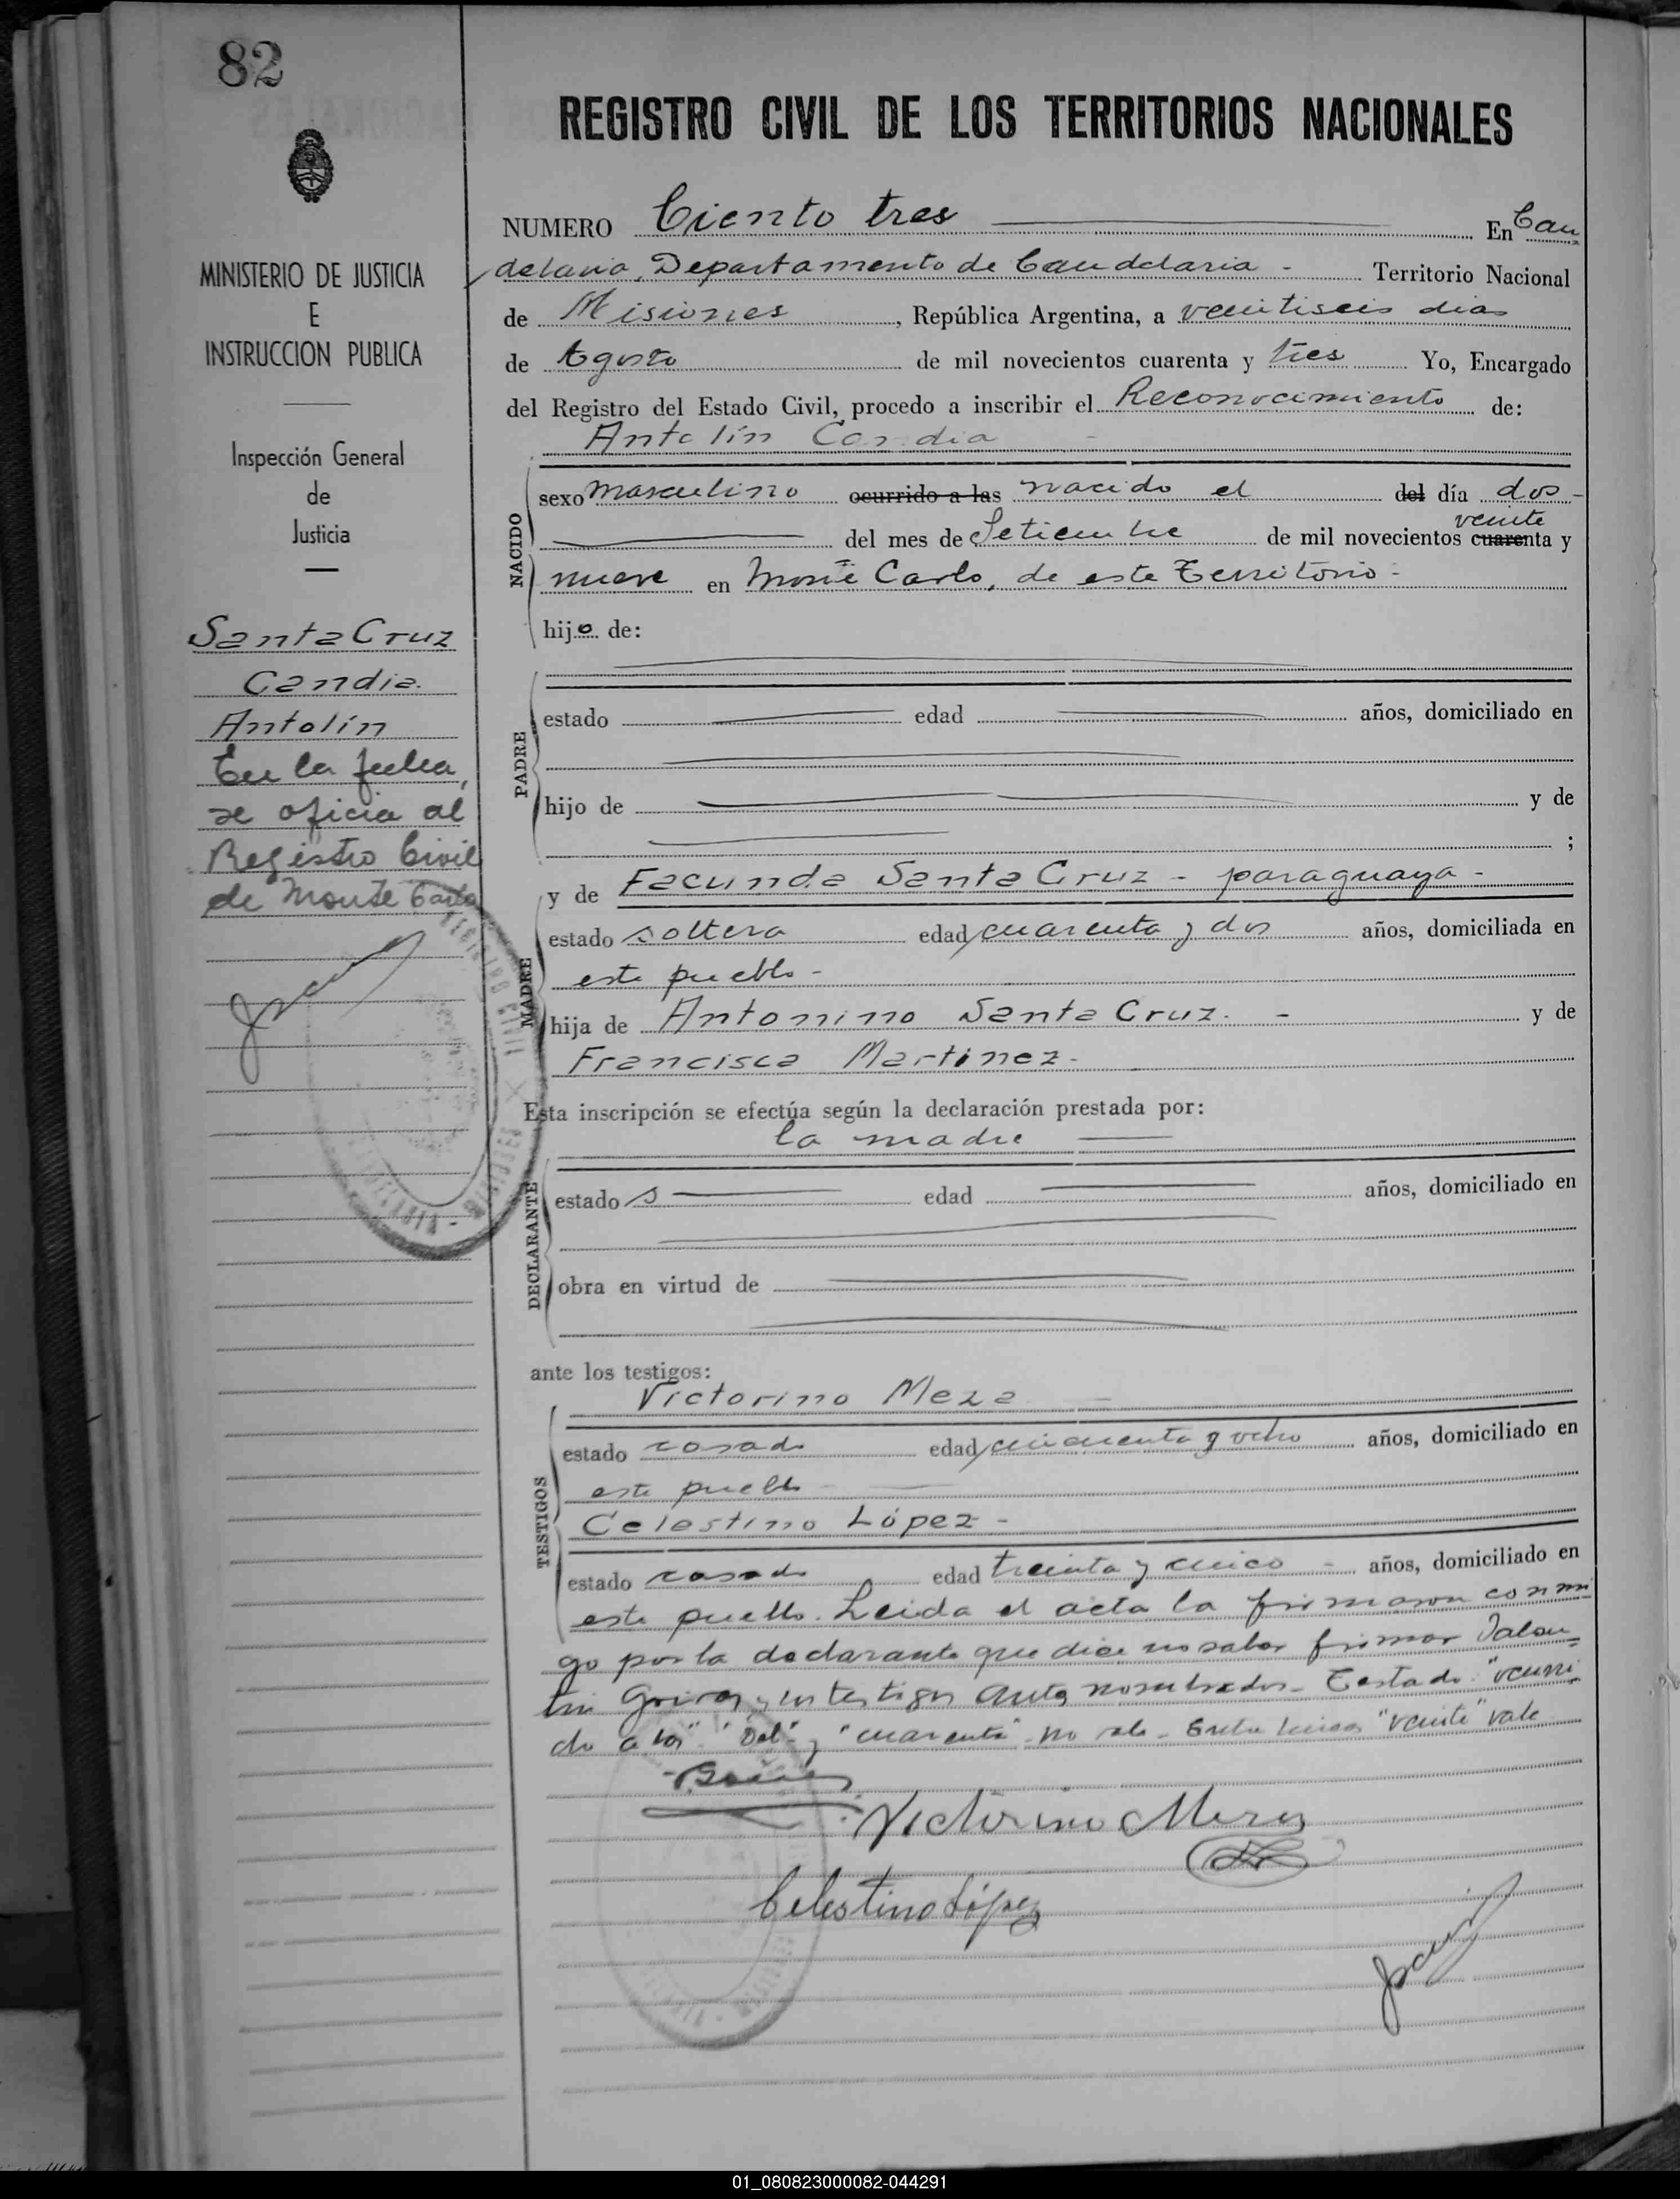 82
REGISTRO CIVIL DE LOS TERRITORIOS NACIONALES
MINISTERIO DE JUSTICIA
E
INSTRUCCION PUBLICA
Inspección General
de
Justicia
Santa Cruz
Candia.
Antolín
En la fecha,
se oficia al
Registro Civil
de Monte Carlo
NUMERO Ciento tres En Can
delaria, Departamento de Candelaria - Territorio Nacional
de Misiones, República Argentina, a veintiseis dias
de Agosto de mil novecientos cuarenta y tres Yo, Encargado
del Registro del Estado Civil, procedo a inscribir el Reconocimiento de:
Antolín Candia -
NACIDO
sexo masculino ocurrido a las nacido el del día dos -
veinte
del mes de Setiembre de mil novecientos cuarenta y
nueve en Monte Carlo, de este Territorio -
hijo de:
PADRE
estado edad años, domiciliado en
hijo de y de
;
MADRE
y de Facunda Santa Cruz - paraguaya -
estado soltera edad cuarenta y dos años, domiciliada en
este pueblo -
hija de Antonino Santa Cruz. - y de
Francisca Martinez -
Esta inscripción se efectúa según la declaración prestada por:
la madre
DECLARANTE
estado s edad años, domiciliado en
obra en virtud de
ante los testigos:
TESTIGOS
Victorino Meza
estado casado edad cincuenta y ocho años, domiciliado en
este pueblo -
Celestino López -
estado casado edad treinta y cinco - años, domiciliado en
este pueblo. Leida el acta la firmaron conmi
go por la declarante que dice no saber firmar
y los testigos antes nombrados - Testado "ocurri
do a las" "del" y "cuarenta" no vale - Entre lineas "veinte" vale
Victorino Meza
Celestino López
01_080823000082-044291